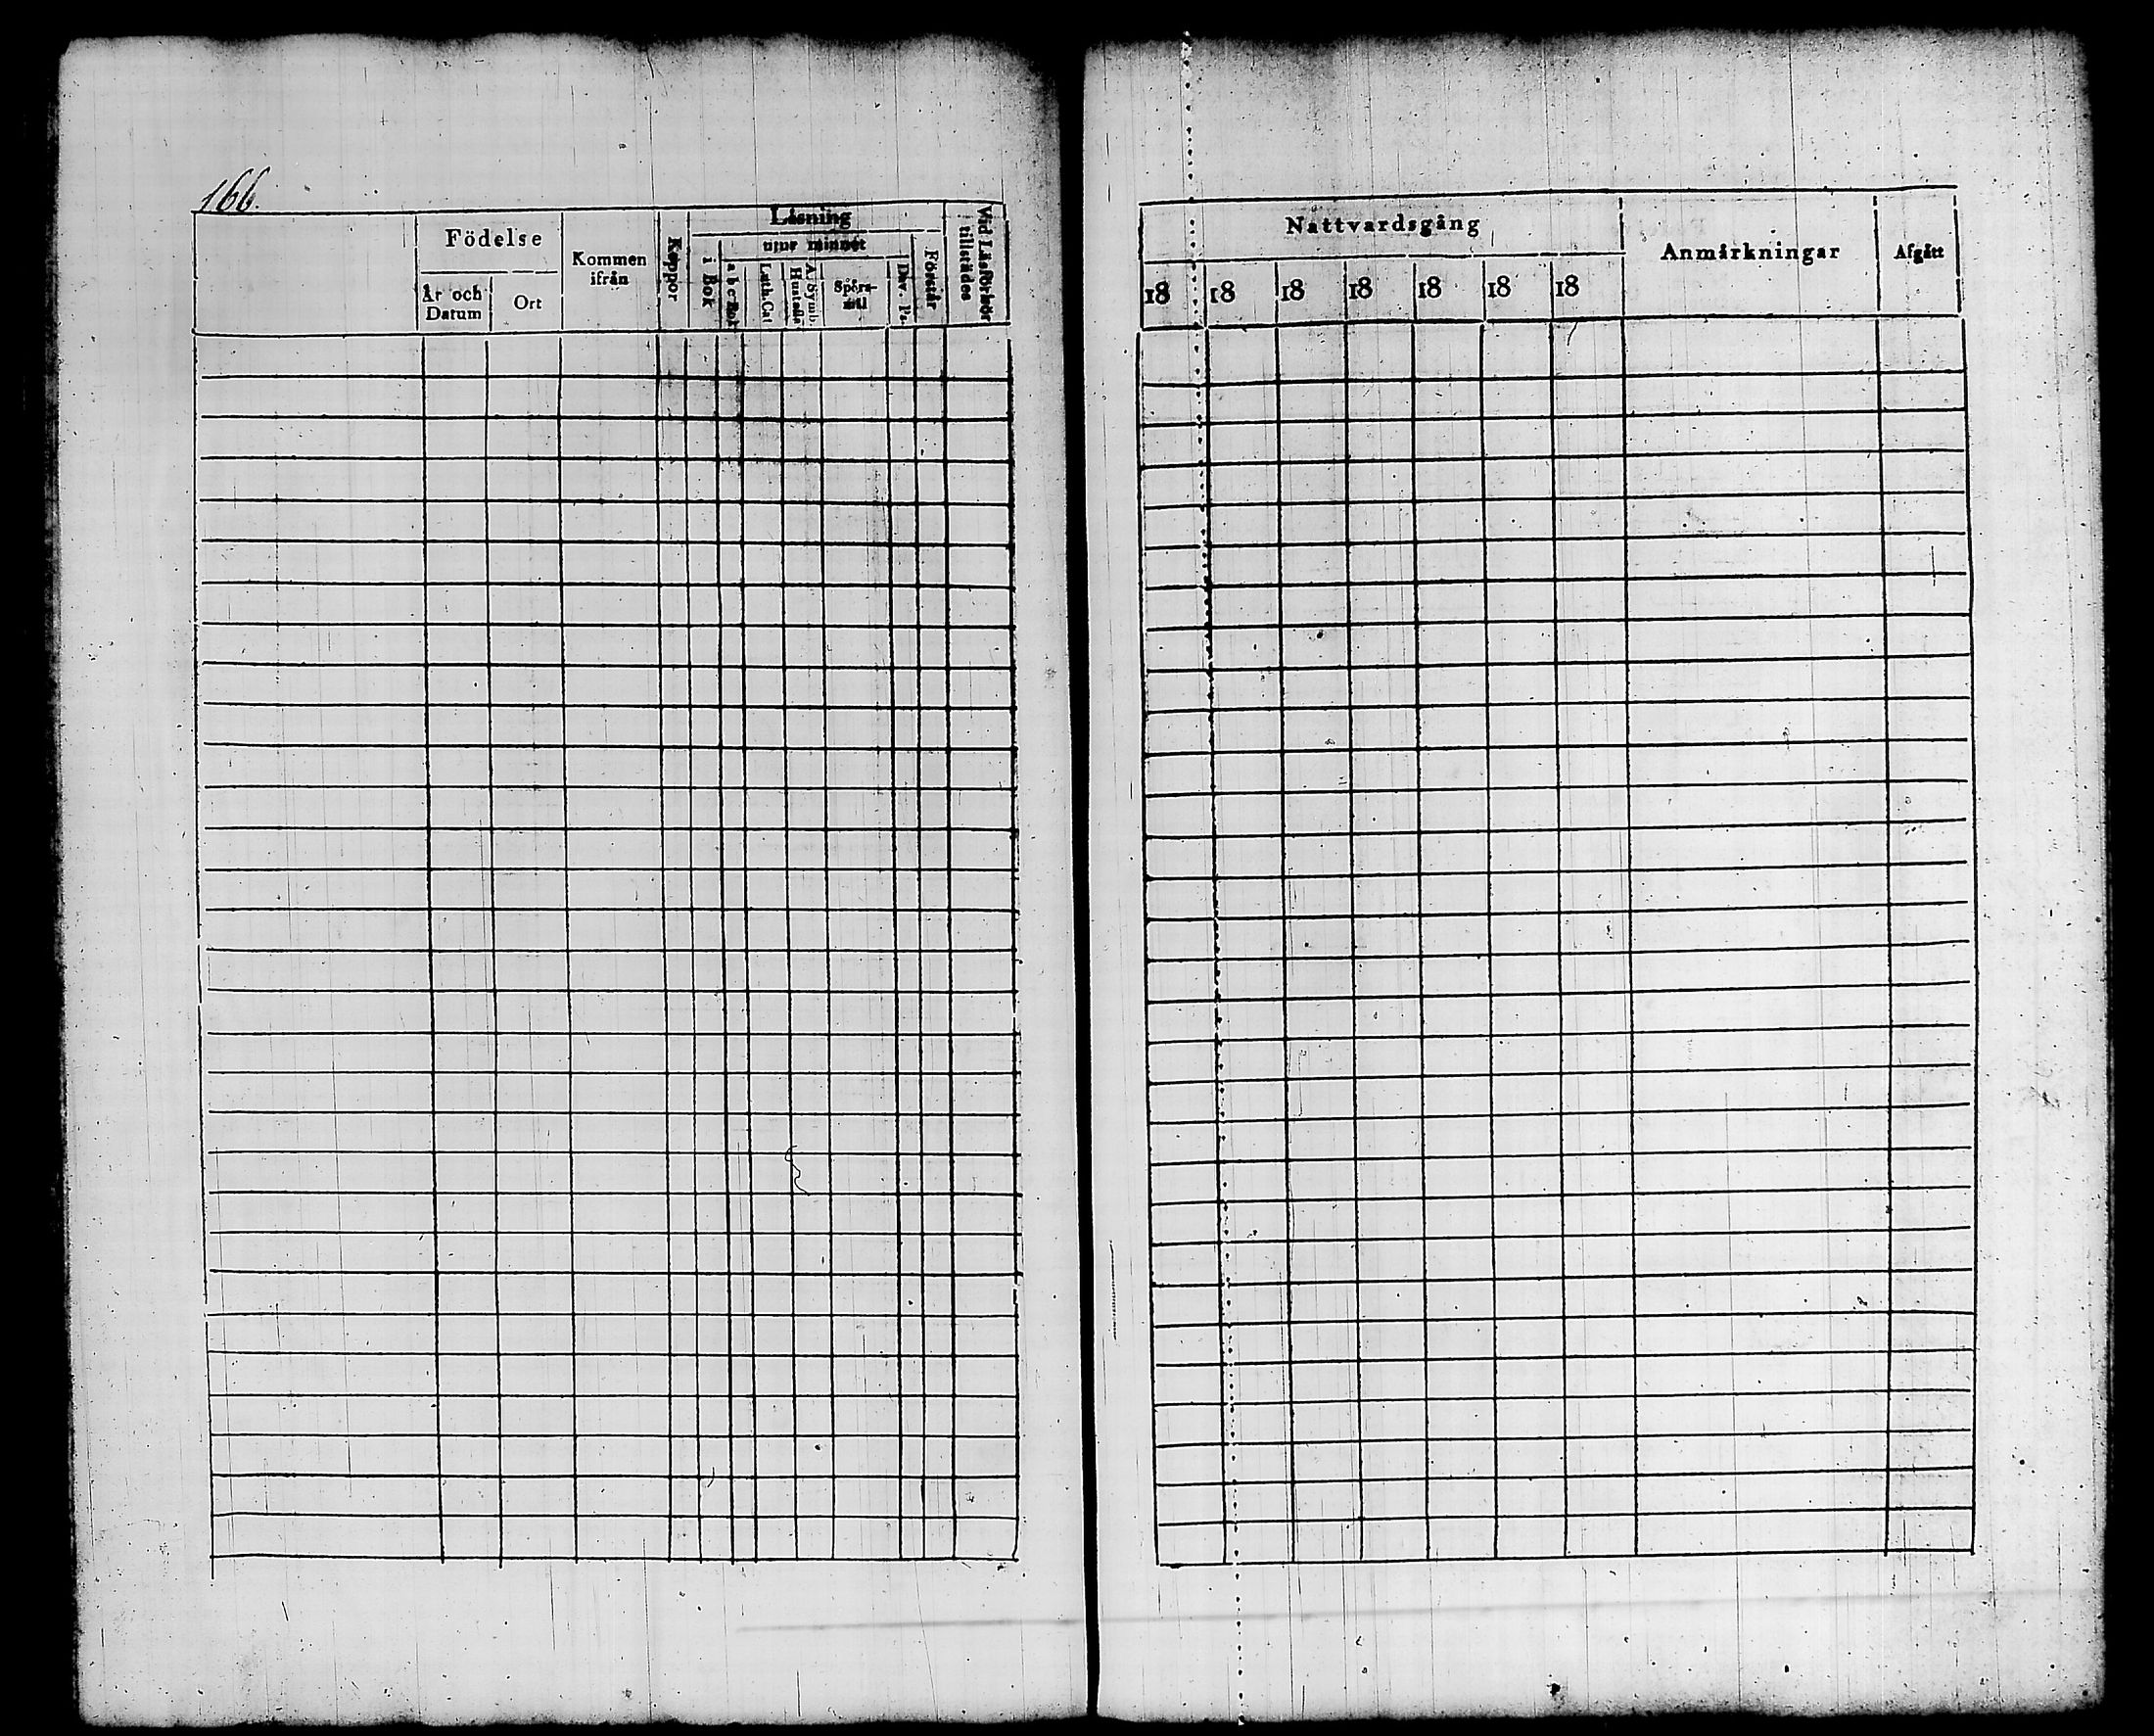 166.
Födelse
År och Datum
Ort
Kommen ifrån
Koppor
Läsning
i Bok
utur minnet
a b c Bok
Luth. Cat
A. Symb. Hustafla
Spörs-mål
Dav. Ps.
Förstår
Vid Läsförhör tillstädes
Nattvardsgång
18 18 18 18 18 18 18
Anmärkningar
Afgått